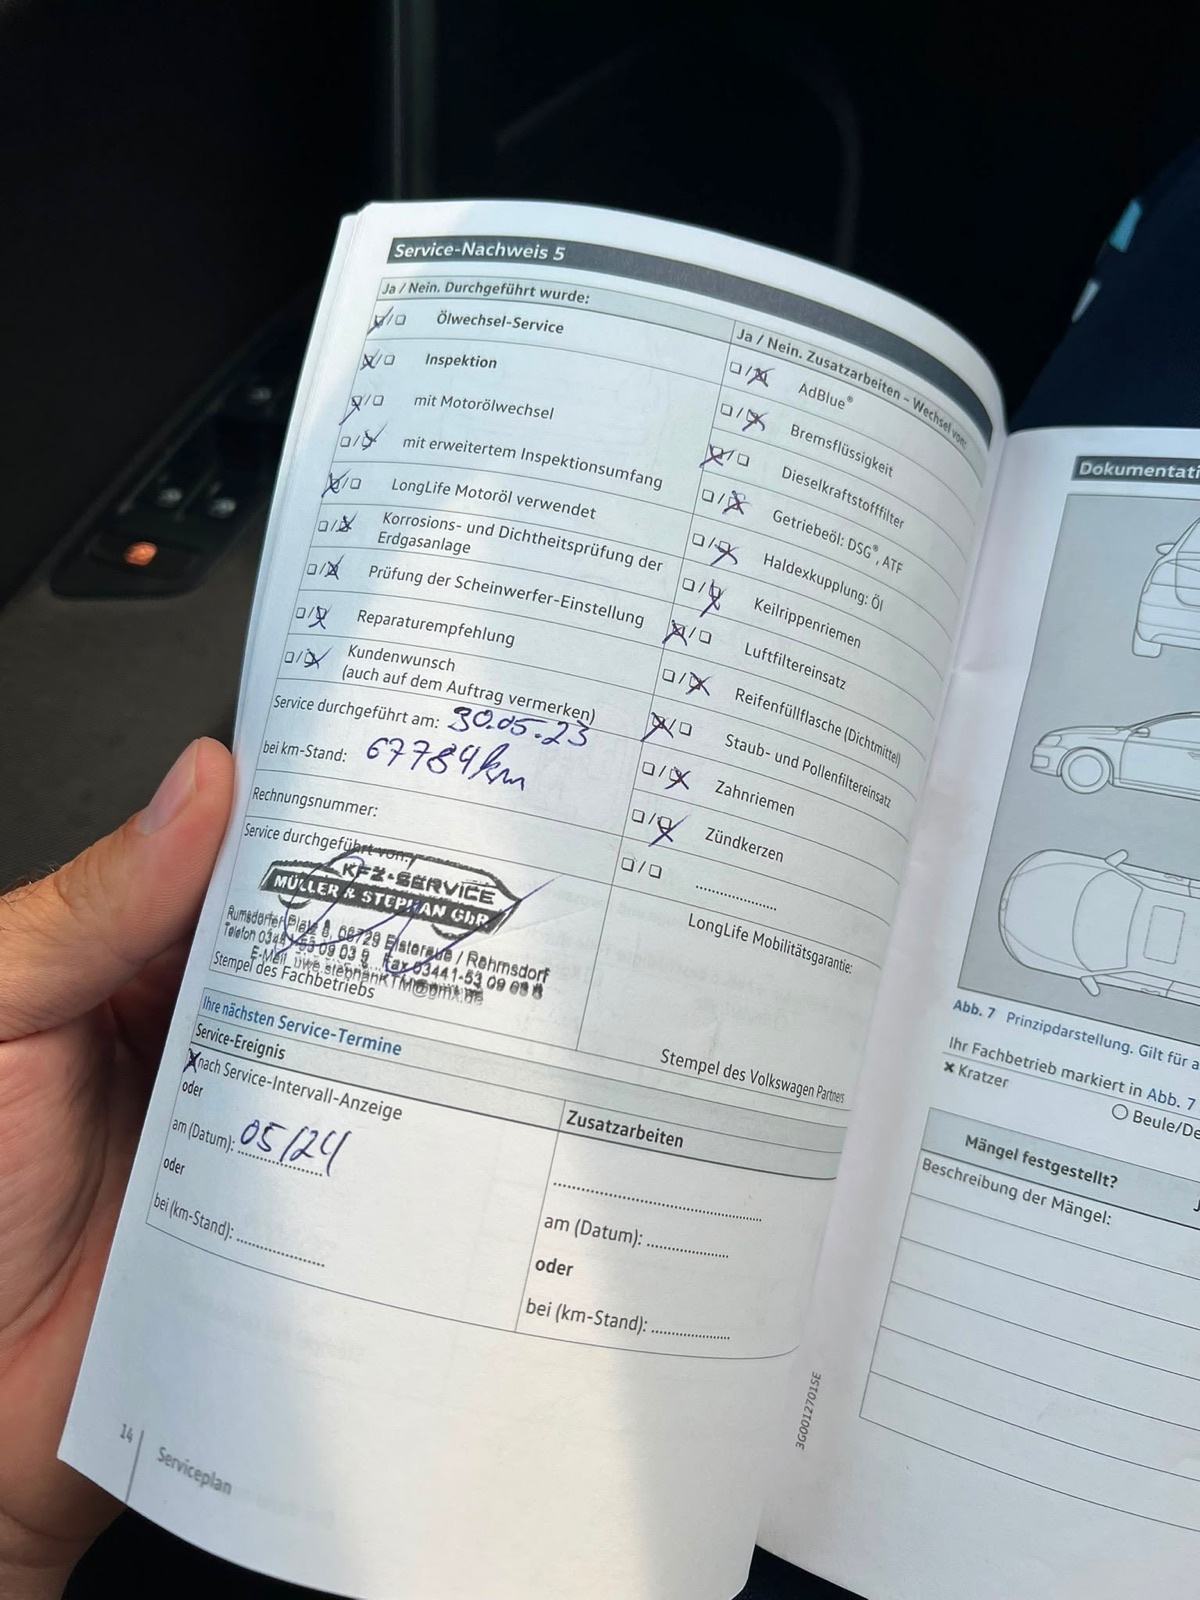 Service-Nachweis 5
Ja / Nein. Durchgeführt wurde:
Ölwechsel-Service
Inspektion
mit Motorölwechsel
mit erweitertem Inspektionsumfang
LongLife Motoröl verwendet
Korrosions- und Dichtheitsprüfung der
Erdgasanlage
Prüfung der Scheinwerfer-Einstellung
Reparaturempfehlung
Kundenwunsch
(auch auf dem Auftrag vermerken)
Service durchgeführt am: 30.05.23
bei km-Stand: 67784km
Rechnungsnummer:
Service durchgeführt von:
KFZ-SERVICE
MÜLLER & STEPHAN GbR
Rumsdorfer Platz 8, 06729 Elsteraue / Rehmsdorf
Telefon 03441-53 09 03 Fax 03441-53 09
E-Mail uwe.stephanKTM@gmx.de
Stempel des Fachbetriebs
Ja / Nein. Zusatzarbeiten – Wechsel von:
AdBlue®
Bremsflüssigkeit
Dieselkraftstofffilter
Getriebeöl: DSG®, ATF
Haldexkupplung: Öl
Keilrippenriemen
Luftfiltereinsatz
Reifenfüllflasche (Dichtmittel)
Staub- und Pollenfiltereinsatz
Zahnriemen
Zündkerzen
....................
LongLife Mobilitätsgarantie:
Stempel des Volkswagen Partners
Ihre nächsten Service-Termine
Service-Ereignis
nach Service-Intervall-Anzeige
oder
am (Datum): 05/24
oder
bei (km-Stand): ....................
Zusatzarbeiten
....................
am (Datum): ....................
oder
bei (km-Stand): ....................
3G0012701SE
14
Serviceplan
Dokumentati
Abb. 7 Prinzipdarstellung. Gilt für a
Ihr Fachbetrieb markiert in Abb. 7
× Kratzer
Beule/De
Mängel festgestellt?
J
Beschreibung der Mängel: